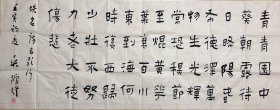 青青園中
葵朝露待
日晞陽春
布德澤萬
物生光輝
常恐秋節
至焜黃華
葉衰百川
東到海何
時復西歸
少壯不努
力老大徒
傷悲
歌行
壬寅